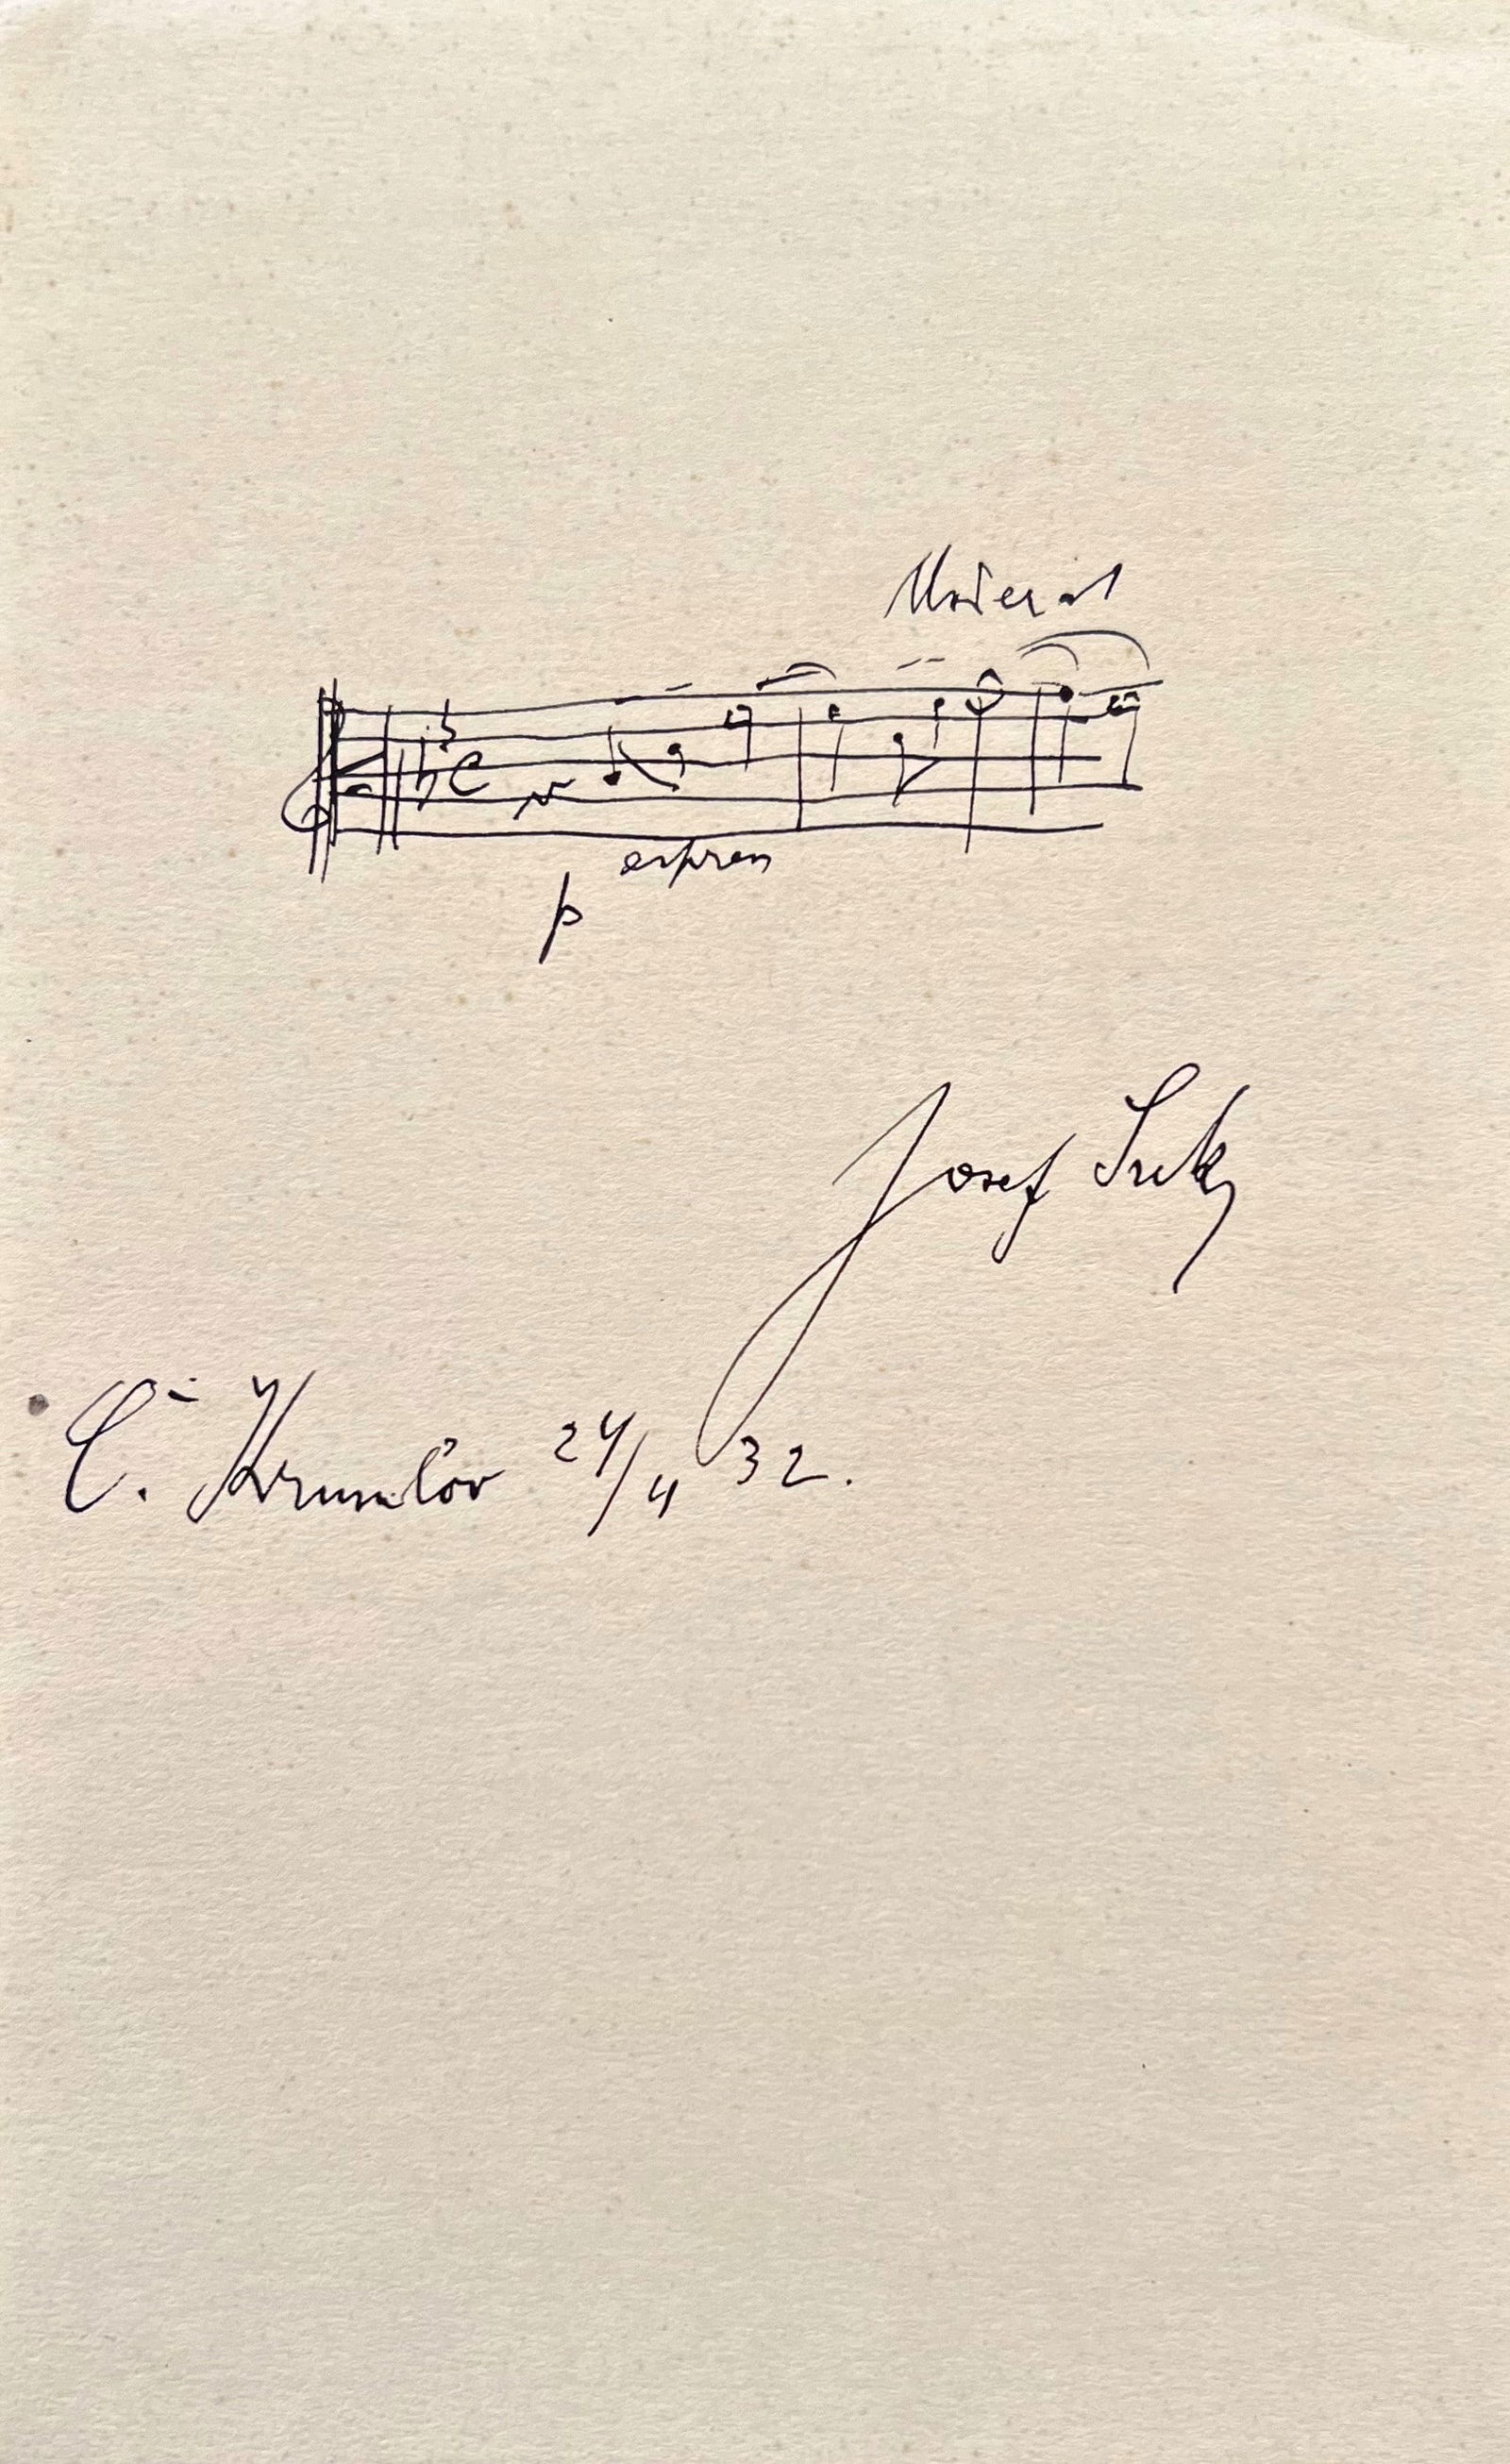 Moderat
p espress
Josef Suk
Č. Krumlov 24/4 32.